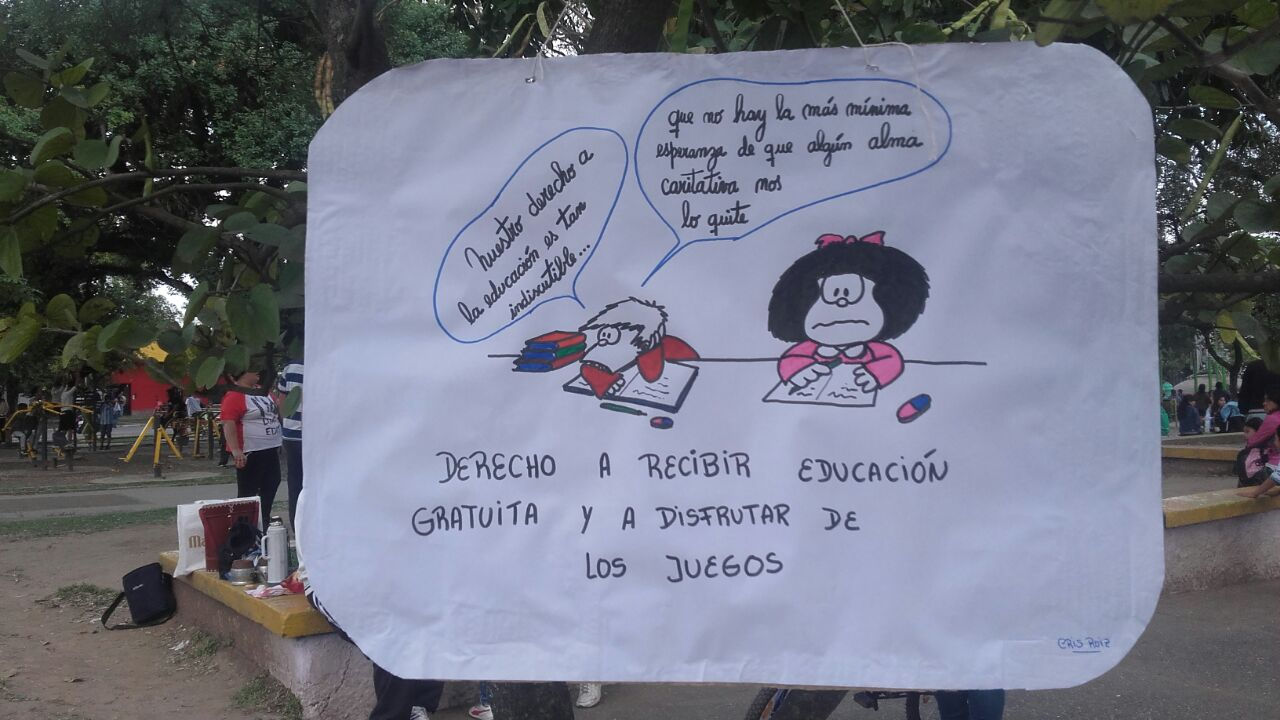 Nuestro derecho a
la educación es tan
indiscutible...
que no hay la más mínima
esperanza de que algún alma
caritativa nos
lo quite
DERECHO A RECIBIR EDUCACIÓN
GRATUITA Y A DISFRUTAR DE
LOS JUEGOS
CRIS RUIZ